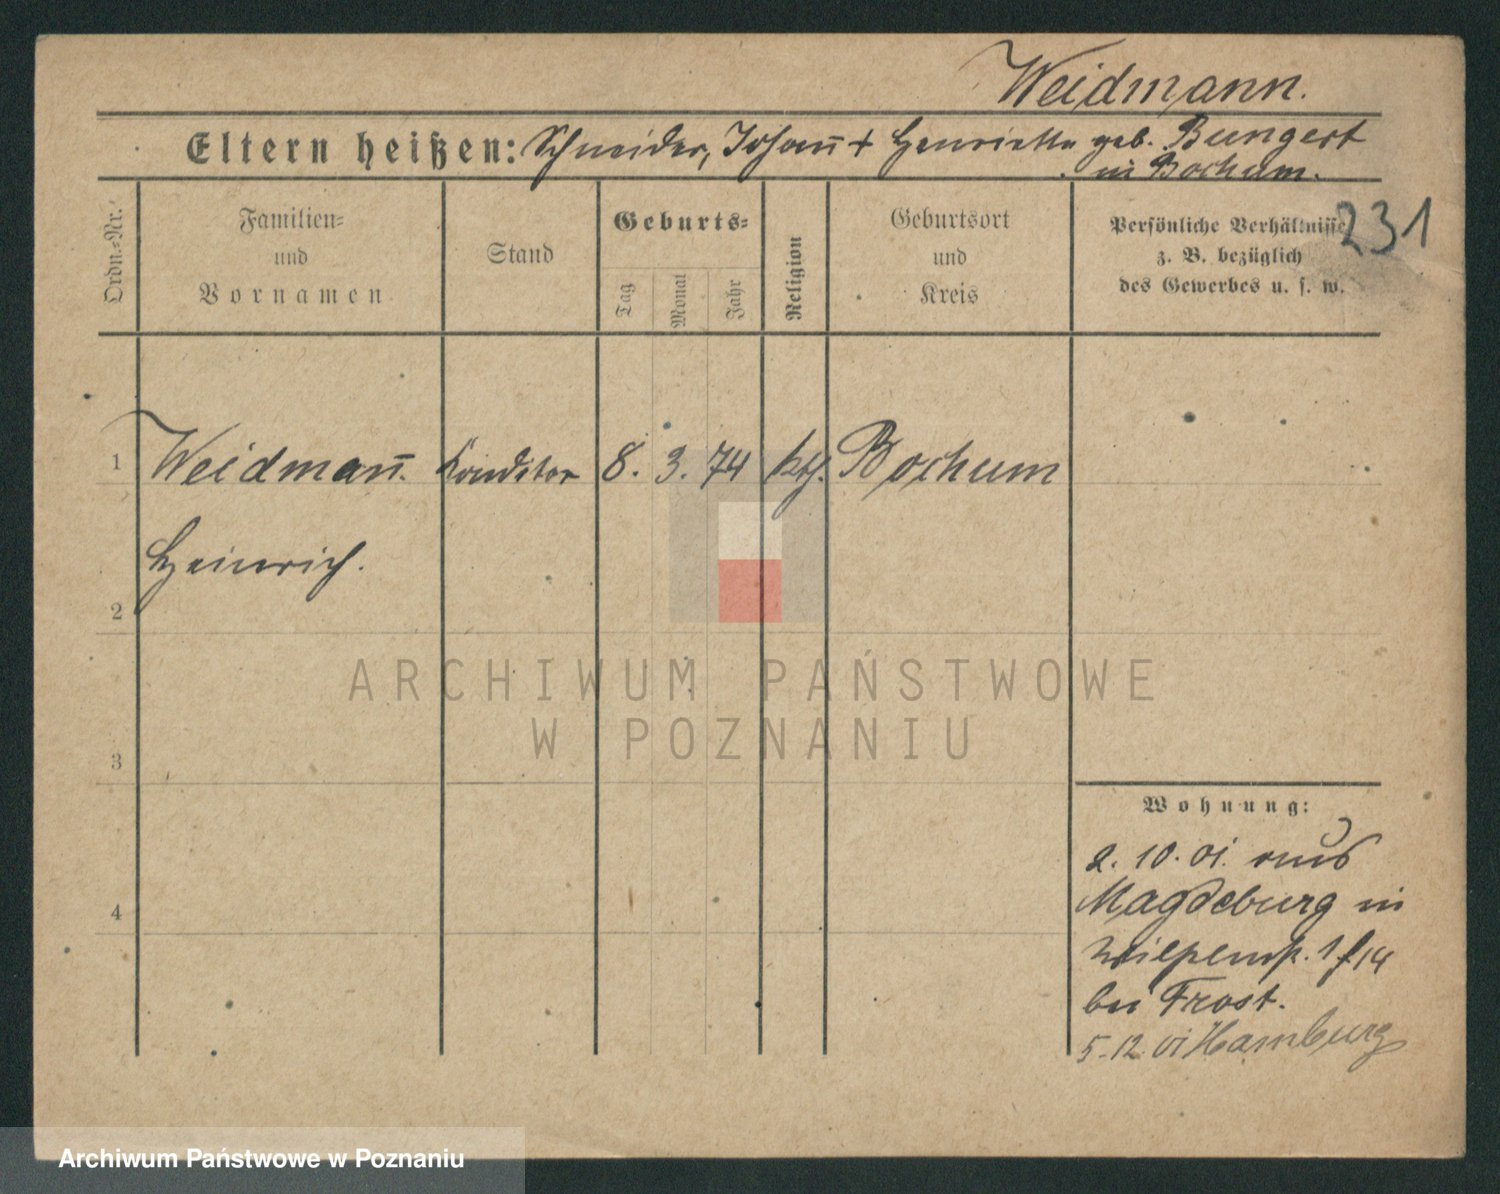 Weidmann.
Eltern heißen: Schneider, Johan̅ + Henriette geb. Bungert
in Bochum.
Ordn.-Nr.
Familien-
und
Vornamen
Stand
Geburts-
Tag
Monat
Jahr
Religion
Geburtsort
und
Kreis
Persönliche Verhältnisse
z. B. bezüglich
des Gewerbes u. s. w.
231
1 Weidman̅. Konditor 8. 3. 74 kth. Bochum
Heinrich.
2
3
4
ARCHIWUM PAŃSTWOWE
W POZNANIU
Wohnung:
2. 10. 01. aus
Magdeburg in
14
bei Frost.
5. 12. 01 Hamburg
Archiwum Państwowe w Poznaniu